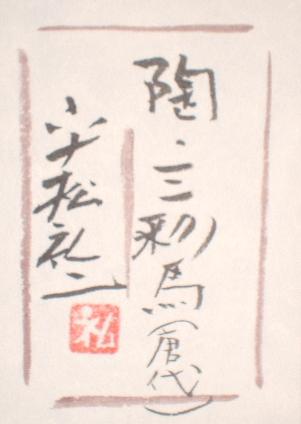 陶・三彩馬(唐代)
小松礼二